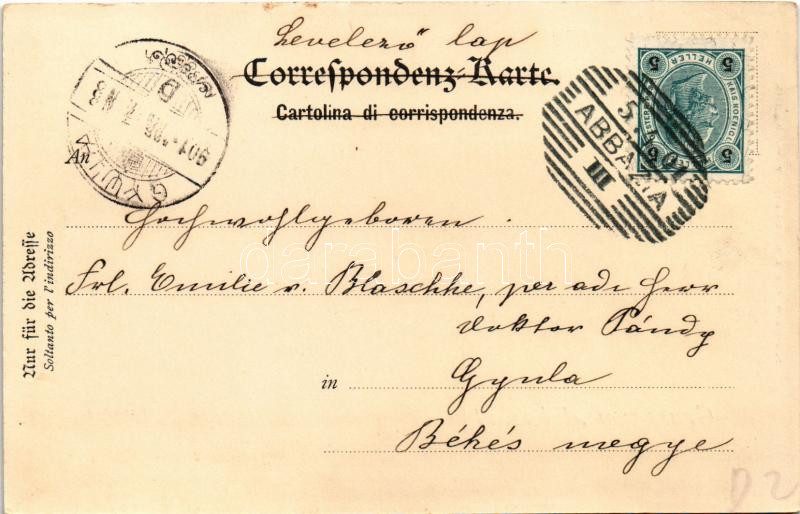 Levelező lap
Correspondenz-Karte.
Cartolina di corrispondenza.
5 HELLER 5
ABBAZIA
III
GYULA
901
An
Hochwohlgeboren.
Frl. Emilie v. Blaschke, per adr Herr
doktor Pándy
in Gyula
Békés megye
Nur für die Adresse
Soltanto per l'indirizzo
darabanth
D 2